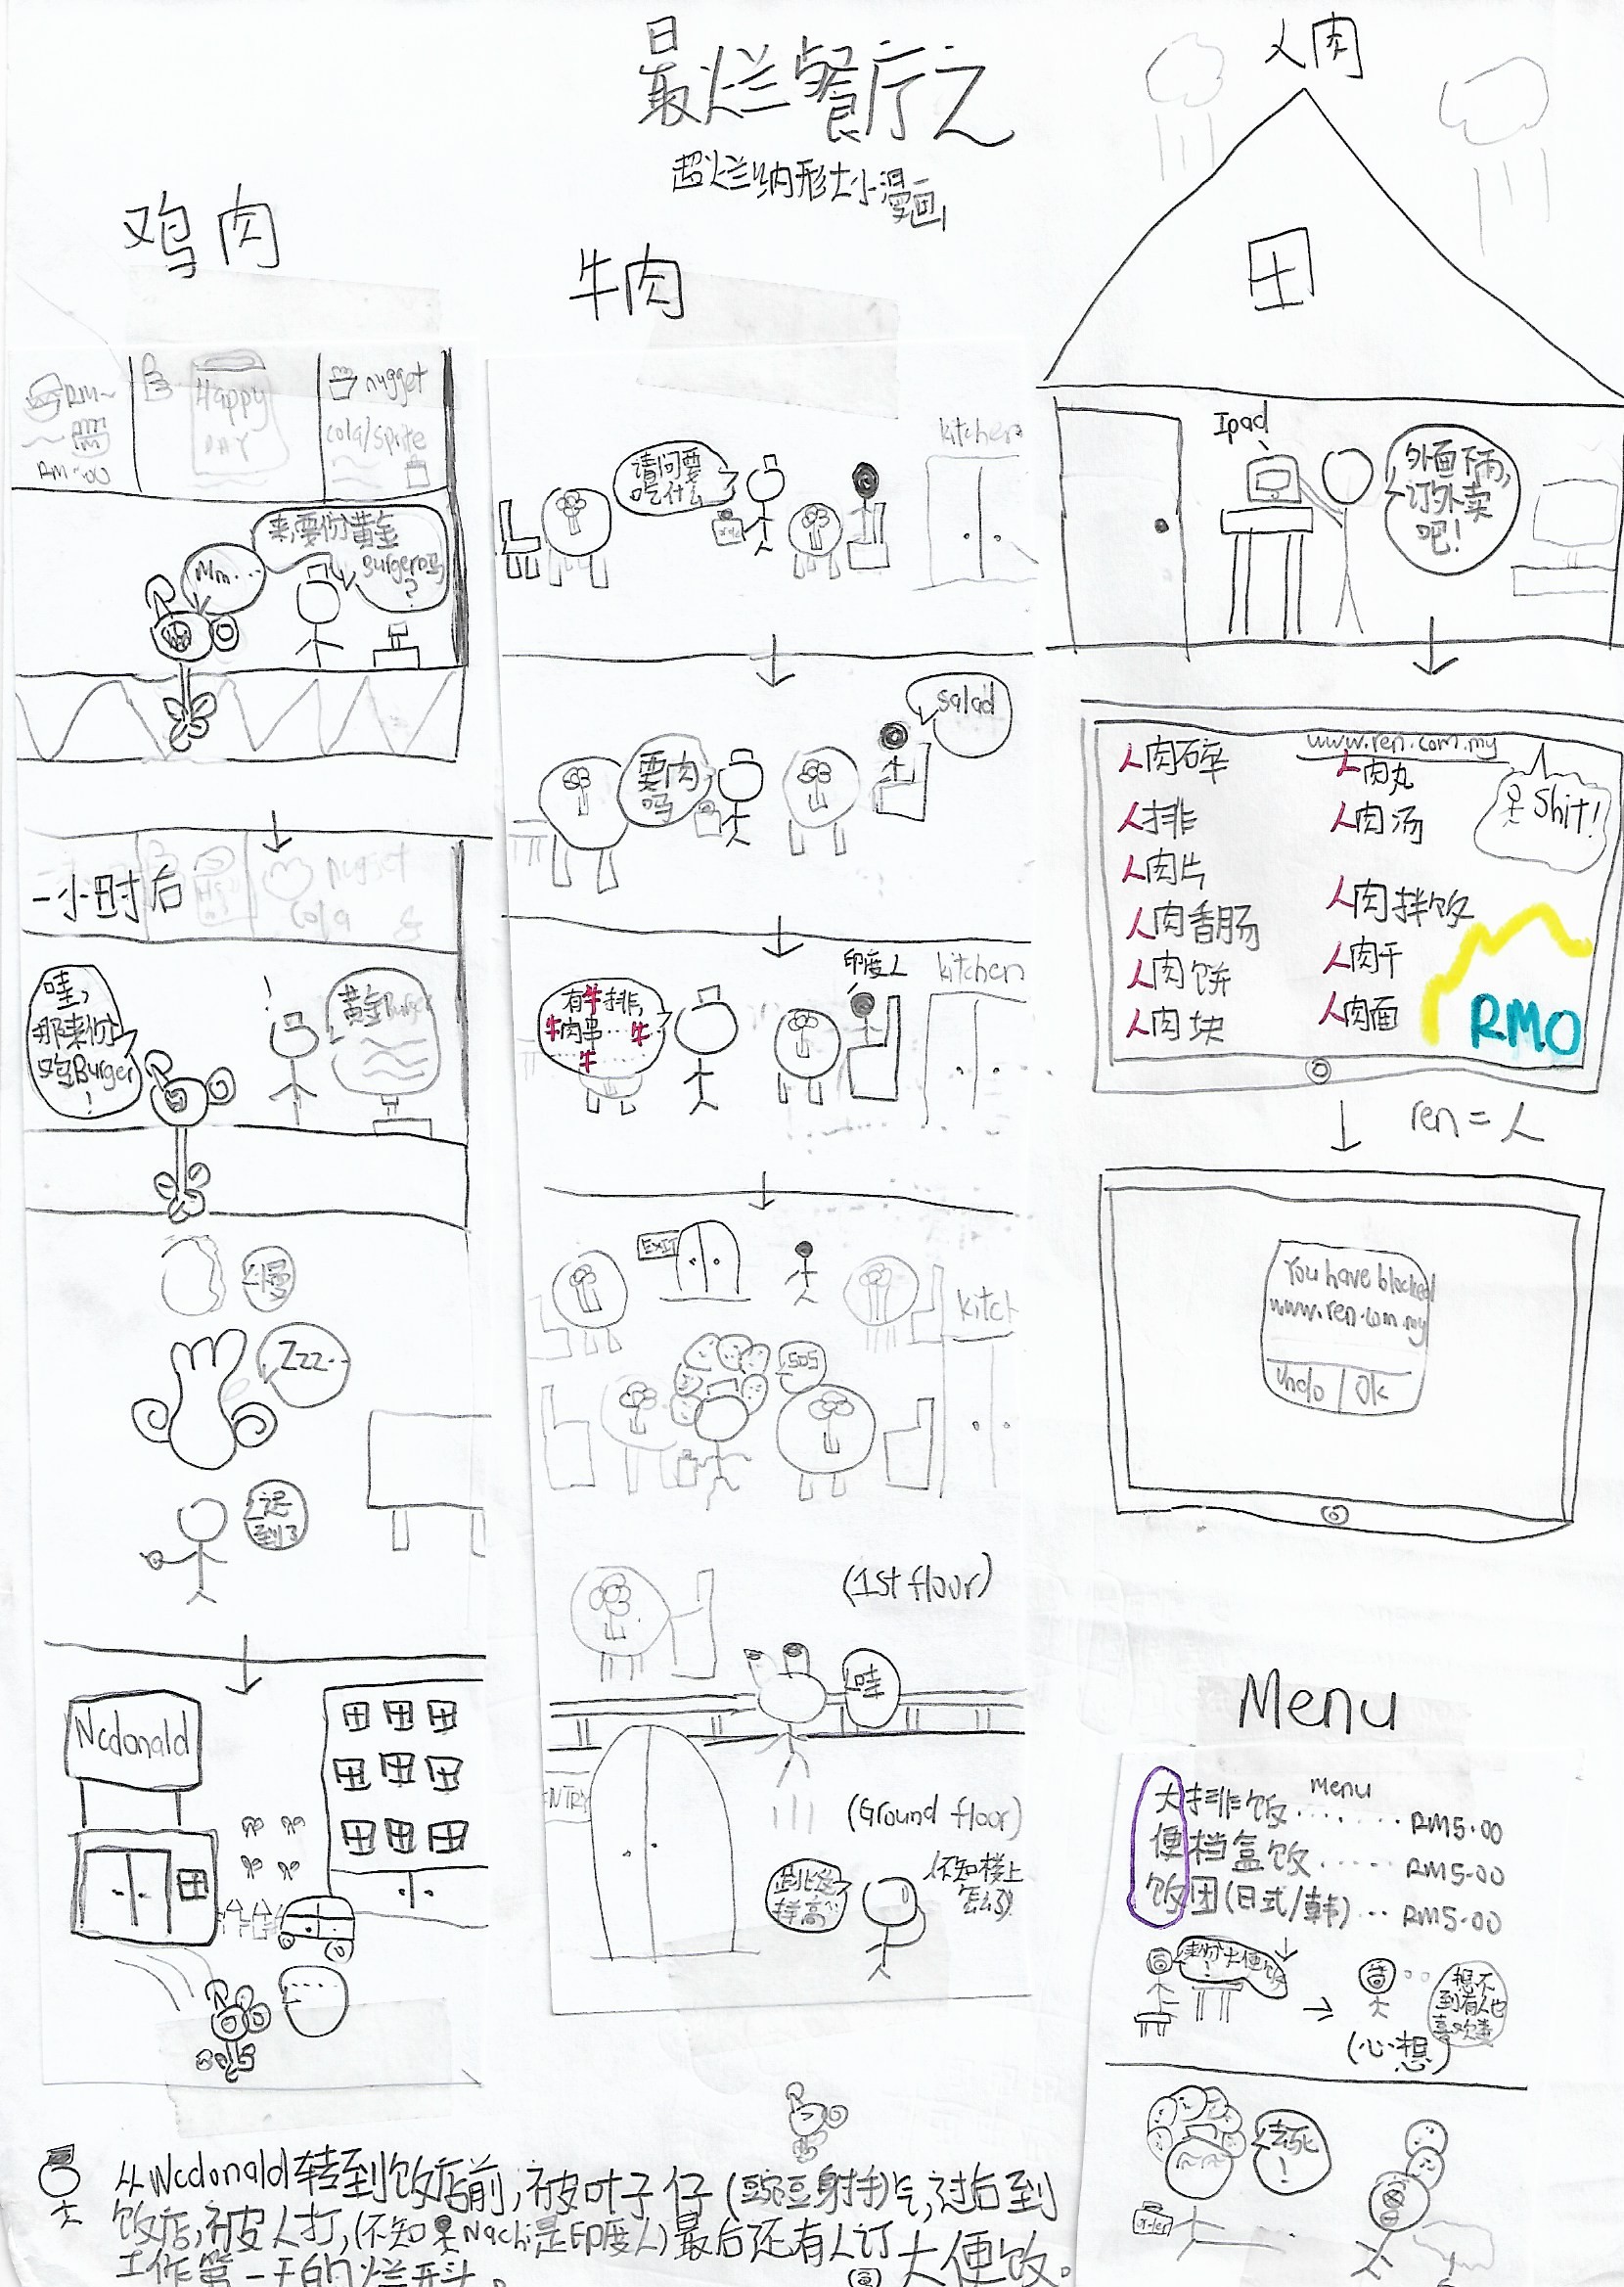 最烂餐厅之
超烂纳形大小漫画
鸡肉
RM~
RM~00
Happy
DAY
nugget
cola/sprite
来,要份黄金
Burger吗
?
Mm...
一小时后
nugget
cola
哇,
那来份
鸡Burger
!
!
黄金Burger
慢
Zzz..
迟
到了
Ncdonald
......
牛肉
请问要
吃什么
kitchen
salad
要肉
吗
印度人
kitchen
有牛排,
牛肉串...牛
牛
EXIT
kitch
SOS
(1st floor)
哇
ENTRY
(Ground floor)
不知楼上
怎么了
人肉
Ipad
外面下雨,
订外卖
吧!
www.ren.com.my
人肉碎
人排
人肉片
人肉香肠
人肉饼
人肉块
人肉丸
人肉汤
人肉拌饭
人肉干
人肉面
Shit!
RM0
ren=人
You have blocked
www.ren.com.my
Undo | Ok
Menu
Menu
大排饭....... RM5.00
便档盒饭..... RM5.00
饭团(日式/韩)... RM5.00
来份大便饭
!
想不
到有人也
喜欢
(心想)
去死
!
从Ncdonald转到饭店前,被叶子仔(豌豆射手)气,过后到
饭店,被人打,(不知Nachi是印度人)最后还有人订大便饭。
工作第一天的烂开头。